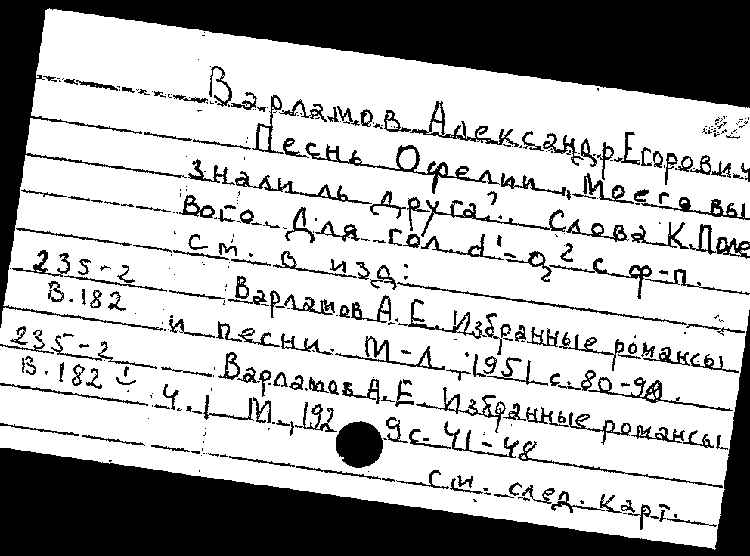 Варламов Александр Егорович
Песнь Офелии „Моего вы
знали ль друга?.. Слова К. Поле
вого. Для гол. d'-
с ф-п.
см. в изд:
235-2 Варламов А. Е. Избранные романсы
В.182 и песни. М-Л., 1951 с. 80-
235-2 Варламов А. Е. Избранные романсы
В.182 ч. 1 М., 192 9 с. 41-48
см. след. карт.